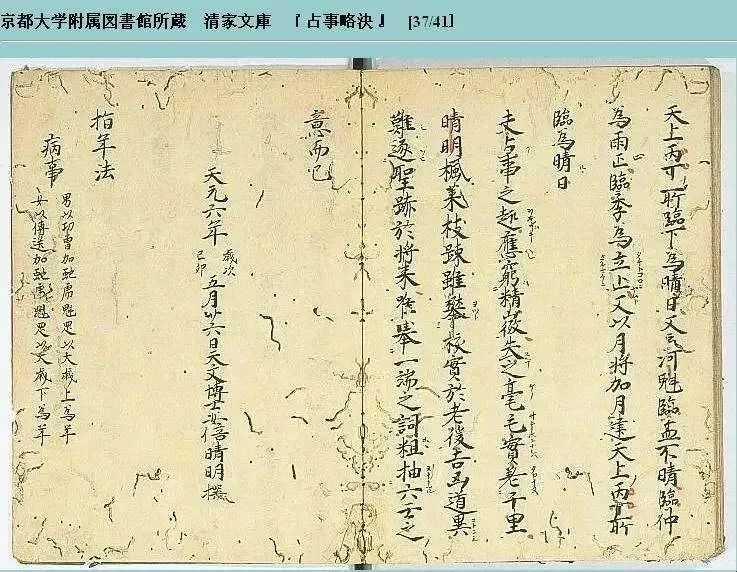 京都大学附属図書館所蔵 清家文庫 『占事略決』 [37/41]
天上丙丁所臨下為晴日又云河魁臨孟不晴臨仲
為雨正臨季為立止又以月将加月建天上丙丁所
臨為晴日
夫占事之趣應窮精微失之毫毛實差千里
晴明楓葉枝疎雖攀核實於老後吉凶道異
難逐聖跡於将来唯舉一端之詞粗抽六壬之
意而已
天元六年 歳次己卯 五月廿六日天文博士安倍晴明撰
指年法
病事
男以功曹加 以大歳上為年
女以傳送加 以大歳下為年